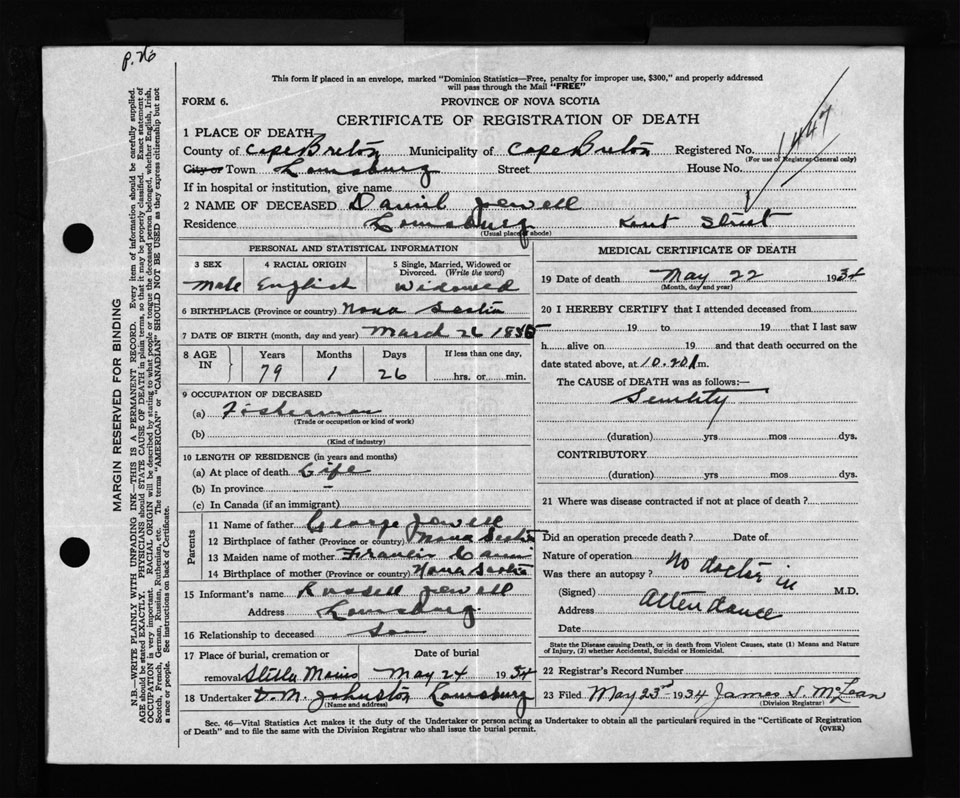 P. 26
This form if placed in an envelope, marked "Dominion Statistics—Free, penalty for improper use, $300," and properly addressed
will pass through the Mail "FREE"
FORM 6. PROVINCE OF NOVA SCOTIA
CERTIFICATE OF REGISTRATION OF DEATH
1447
1 PLACE OF DEATH
County of Cape Breton Municipality of Cape Breton Registered No.
(For use of Registrar-General only)
City or Town Louisburg Street House No.
If in hospital or institution, give name
2 NAME OF DECEASED Daniel Jewell
Residence Louisburg Kent Street
(Usual place of abode)
PERSONAL AND STATISTICAL INFORMATION
3 SEX 4 RACIAL ORIGIN 5 Single, Married, Widowed or Divorced. (Write the word)
Male English Widowed
6 BIRTHPLACE (Province or country) Nova Scotia
7 DATE OF BIRTH (month, day and year) March 26 1855
8 AGE IN Years Months Days If less than one day,
79 1 26 hrs. or min.
9 OCCUPATION OF DECEASED
(a) Fisherman
(Trade or occupation or kind of work)
(b)
(Kind of industry)
10 LENGTH OF RESIDENCE (in years and months)
(a) At place of death Life
(b) In province –
(c) In Canada (if an immigrant)
Parents
11 Name of father George Jewell
12 Birthplace of father (Province or country) Nova Scotia
13 Maiden name of mother
14 Birthplace of mother (Province or country) Nova Scotia
15 Informant's name Russell Jewell
Address Louisburg
16 Relationship to deceased Son
17 Place of burial, cremation or Date of burial
removal Stella Maris May 24 1934
18 Undertaker D. M. Johnston Louisburg
(Name and address)
MEDICAL CERTIFICATE OF DEATH
19 Date of death May 22 1934
(Month, day and year)
20 I HEREBY CERTIFY that I attended deceased from
19 to 19 that I last saw
h alive on 19 and that death occurred on the
date stated above, at 10.20 m.
The CAUSE OF DEATH was as follows:—
Senility
(duration) yrs mos dys.
CONTRIBUTORY
(duration) yrs mos dys.
21 Where was disease contracted if not at place of death?
Did an operation precede death? Date of
Nature of operation
Was there an autopsy? No doctor in
(Signed) M.D.
Address attendance
Date
State the Disease causing Death, or in death from Violent Causes, state (1) Means and Nature
of Injury, (2) whether Accidental, Suicidal or Homicidal.
22 Registrar's Record Number
23 Filed May 25 1934 James S. McLean
(Division Registrar)
Sec. 46—Vital Statistics Act makes it the duty of the Undertaker or person acting as Undertaker to obtain all the particulars required in the "Certificate of Registration
of Death" and to file the same with the Division Registrar who shall issue the burial permit. (OVER)
MARGIN RESERVED FOR BINDING
N.B.—WRITE PLAINLY WITH UNFADING INK—THIS IS A PERMANENT RECORD. Every item of information should be carefully supplied.
AGE should be stated EXACTLY. PHYSICIANS should STATE CAUSE OF DEATH in plain terms, so that it may be properly classified. Exact statement of
OCCUPATION is very important. RACIAL ORIGIN will be described by stating to what people or tongue the deceased person belonged, whether English, Irish,
Scotch, French, German, Russian, Ruthenian, etc. The terms "AMERICAN" or "CANADIAN" SHOULD NOT BE USED as they express citizenship but not
a race or people. See instructions on back of Certificate.